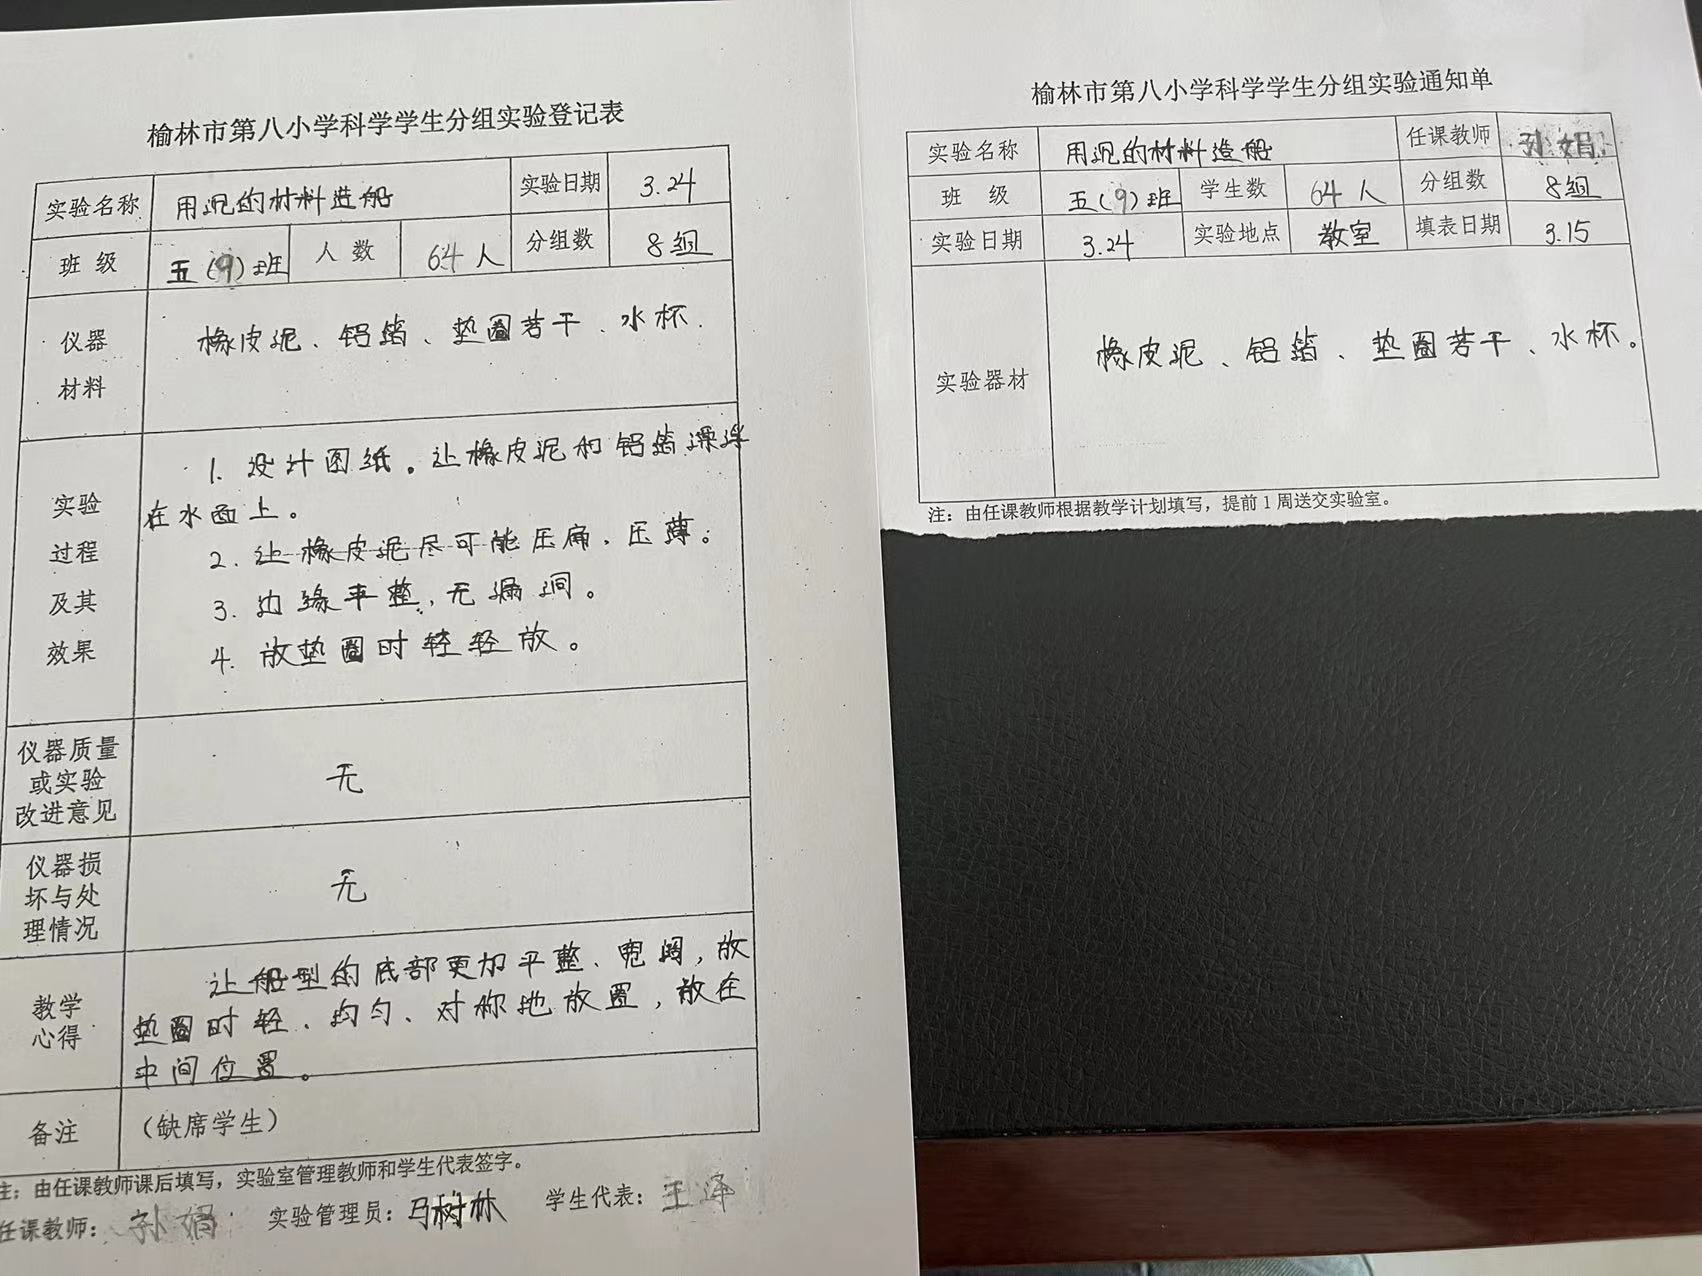 榆林市第八小学科学学生分组实验登记表
实验名称 用沉的材料造船 实验日期 3.24
班 级 五(9)班 人 数 64人 分组数 8组
仪器
材料
橡皮泥、铝箔、垫圈若干、水杯.
实验
过程
及其
效果
1. 设计图纸。让橡皮泥和铝箔漂浮
在水面上。
2. 让橡皮泥尽可能压扁、压薄。
3. 边缘平整,无漏洞。
4. 放垫圈时轻轻放。
仪器质量
或实验
改进意见
无
仪器损
坏与处
理情况
无
教学
心得
让船型的底部更加平整、宽阔,放
垫圈时轻、均匀、对称地放置,放在
中间位置。
备注 (缺席学生)
注:由任课教师课后填写,实验室管理教师和学生代表签字。
任课教师: 孙娟 实验管理员: 马树林 学生代表: 王泽
榆林市第八小学科学学生分组实验通知单
实验名称 用沉的材料造船 任课教师 孙娟
班 级 五(9)班 学生数 64人 分组数 8组
实验日期 3.24 实验地点 教室 填表日期 3.15
实验器材 橡皮泥、铝箔、垫圈若干、水杯。
注:由任课教师根据教学计划填写,提前1周送交实验室。